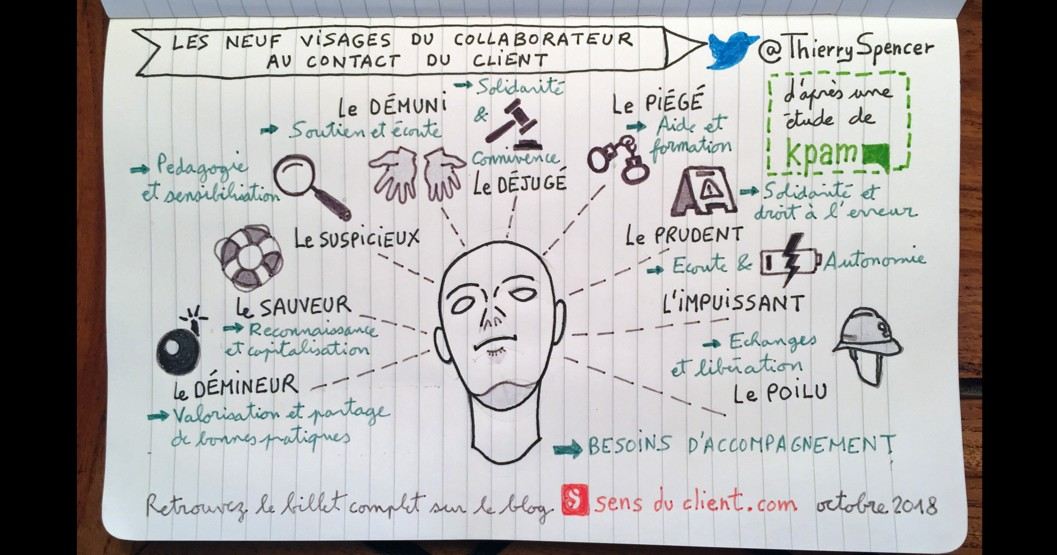 LES NEUF VISAGES DU COLLABORATEUR
AU CONTACT DU CLIENT
@ThierrySpencer
d'après une
étude de
kpam
Solidarité
&
Connivence
Le DÉJUGÉ
Le DÉMUNI
Soutien et écoute
Le PIÉGÉ
Aide et
formation
Pedagogie
et sensibilisation
Le SUSPICIEUX
Solidarité et
droit à l'erreur
Le PRUDENT
Ecoute & Autonomie
L'IMPUISSANT
Le SAUVEUR
Reconnaissance
et capitalisation
Echanges
et libération
Le POILU
Le DÉMINEUR
Valorisation et partage
de bonnes pratiques
BESOINS D'ACCOMPAGNEMENT
Retrouvez le billet complet sur le blog S sens du client.com octobre 2018